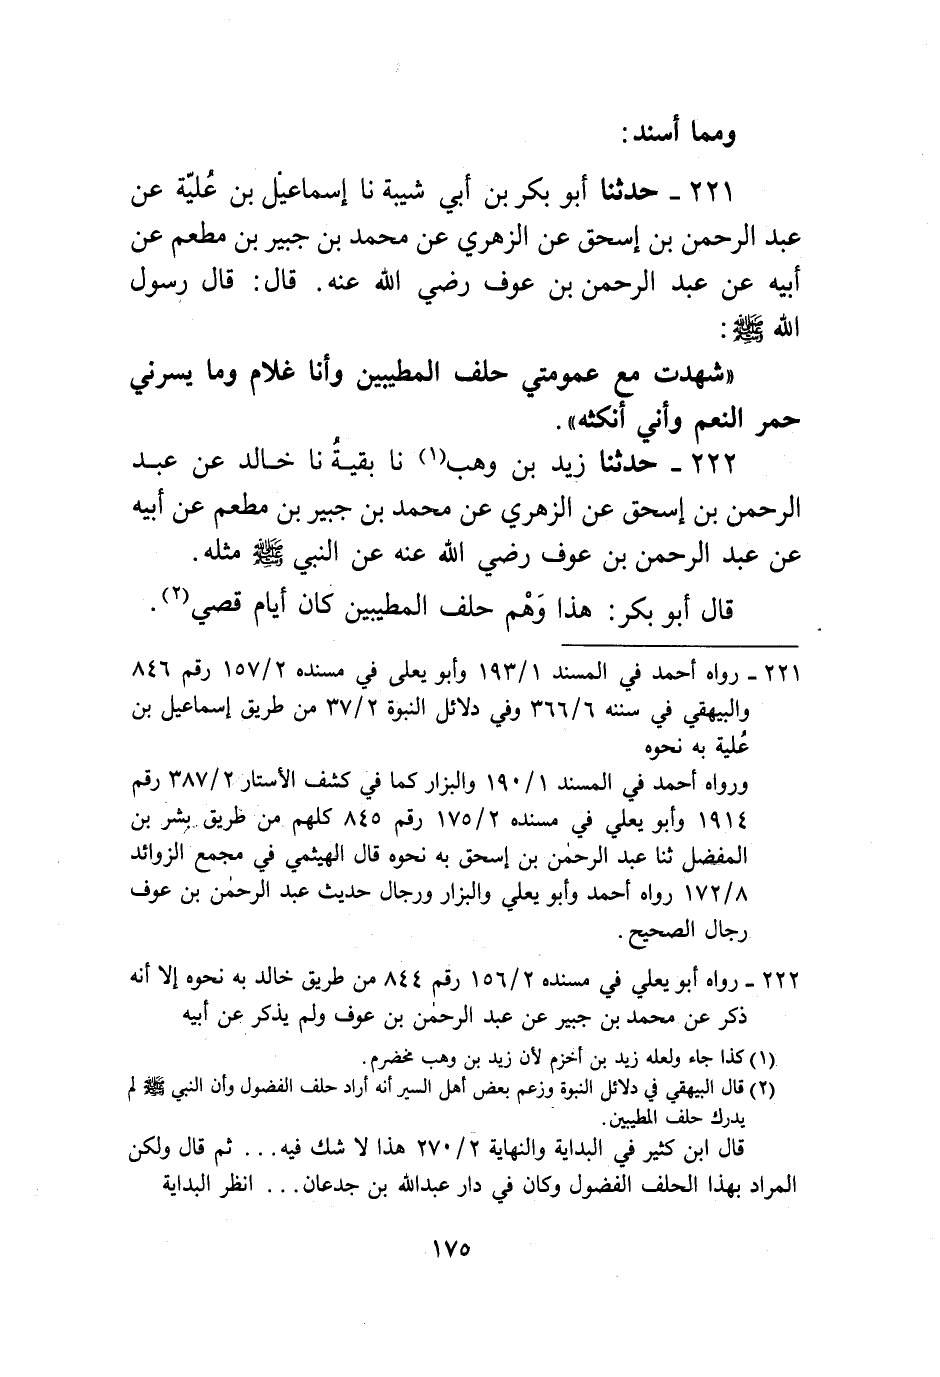 ومما أسند:
٢٢١ ـ حدثنا أبو بكر بن أبي شيبة نا إسماعيل بن عُليّة عن
عبد الرحمن بن إسحق عن الزهري عن محمد بن جبير بن مطعم عن
أبيه عن عبد الرحمن بن عوف رضي الله عنه. قال: قال رسول
الله ﷺ:
«شهدت مع عمومتي حلف المطيبين وأنا غلام وما يسرني
حمر النعم وأني أنكثه».
٢٢٢ ـ حدثنا زيد بن وهب(١) نا بقيةُ نا خالد عن عبد
الرحمن بن إسحق عن الزهري عن محمد بن جبير بن مطعم عن أبيه
عن عبد الرحمن بن عوف رضي الله عنه عن النبي ﷺ مثله.
قال أبو بكر: هذا وَهْم حلف المطيبين كان أيام قصي(٢).
٢٢١ ـ رواه أحمد في المسند ١٩٣/١ وأبو يعلى في مسنده ١٥٧/٢ رقم ٨٤٦
والبيهقي في سننه ٣٦٦/٦ وفي دلائل النبوة ٣٧/٢ من طريق إسماعيل بن
عُلية به نحوه
ورواه أحمد في المسند ١٩٠/١ والبزار كما في كشف الأستار ٣٨٧/٢ رقم
١٩١٤ وأبو يعلي في مسنده ١٧٥/٢ رقم ٨٤٥ كلهم من طريق بشر بن
المفضل ثنا عبد الرحمٰن بن إسحق به نحوه قال الهيثمي في مجمع الزوائد
١٧٢/٨ رواه أحمد وأبو يعلي والبزار ورجال حديث عبد الرحمٰن بن عوف
رجال الصحيح.
٢٢٢ ـ رواه أبو يعلي في مسنده ١٥٦/٢ رقم ٨٤٤ من طريق خالد به نحوه إلا أنه
ذكر عن محمد بن جبير عن عبد الرحمٰن بن عوف ولم يذكر عن أبيه
(١) كذا جاء ولعله زيد بن أخزم لأن زيد بن وهب مخضرم.
(٢) قال البيهقي في دلائل النبوة وزعم بعض أهل السير أنه أراد حلف الفضول وأن النبي ﷺ لم
يدرك حلف المطيبين.
قال ابن كثير في البداية والنهاية ٢٧٠/٢ هذا لا شك فيه... ثم قال ولكن
المراد بهذا الحلف الفضول وكان في دار عبدالله بن جدعان... انظر البداية
١٧٥